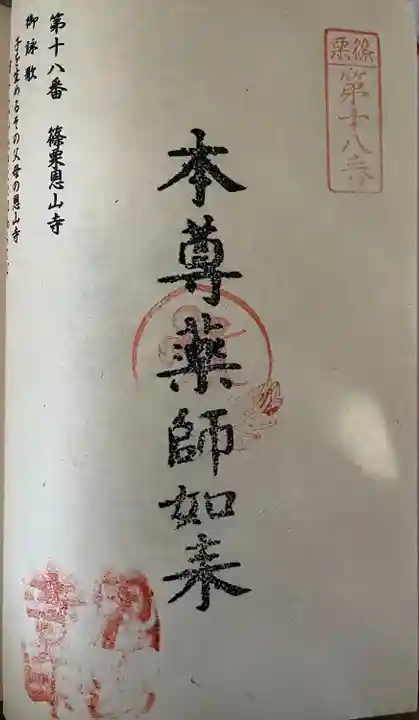 篠栗
第十八番
本尊薬師如来
第十八番 篠栗恩山寺
御詠歌
子を産めるその父母の恩山寺